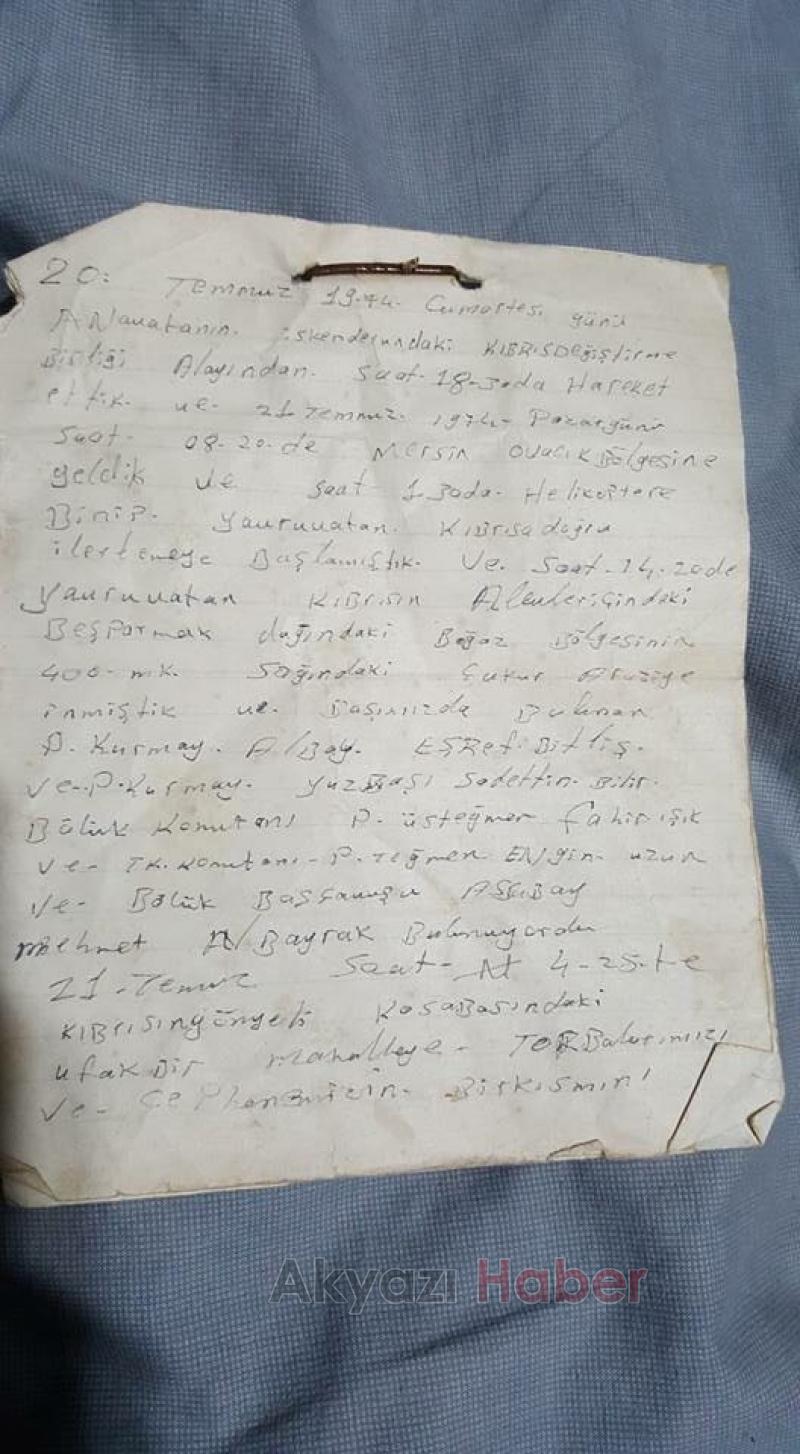 20. Temmuz 1974. Cumartesi günü
ANavatanın. iskenderundaki KIBRISDeğiştirme
Birliği Alayından. Saat-18-30da Hareket
ettik. ve. 21 Temmuz. 1974- Pazargünü
Saat. 08-20-de Mersin OvacıkBölgesine
geldik ve Saat 1330da. Helikoptere
BiniP. yavruvatan. Kıbrısa doğru
ilerlemeye Başlamıştık. Ve. Saat-14.20de
yavruvatan KıBrısın Alevleriçindeki
BeşParmak dağındaki Boğaz Bölgesinin
400-mk. Sağındaki Çukur Araziye
inmiştik ve. Başımızda Bulunan
P. Kurmay. AlBay. EŞRef.Bitliş.
Ve-P.Kurmay. yüzBaşı Sadettin. Bilir.
Bölük Komutanı P. üsteğmen fahir ışık
Ve- TK.Komutanı-P.Teğmen ENgin. uzun
Ve- Bölük Başçavuşu AssBay
Mehmet Bayrak Bulunuyordu
21-Temuz Saat- 4-25-te
KIBrısıngönyeli KasaBasındaki
ufakBir Mahalleye- TORBalarımızı
Ve- Birkısmını